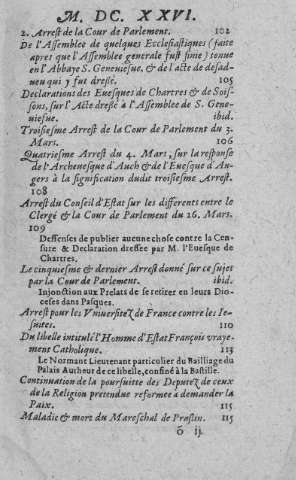 M. DC. XXVI.
2. Arrest de la Cour de Parlement. 102
De l'Assemblee de quelques Ecclesiastiques (faite
apres que l'Assemblee generale fust finie) tenue
en l'Abbaye S. Geneuiesue, & de l'acte de desad-
ueu qui y fut dressé. 105
Declarations des Euesques de Chartres & de Sois-
sons, sur l'Acte dressé à l'Assemblee de S. Gene-
uiesue. ibid.
Troisiesme Arrest de la Cour de Parlement du 3.
Mars. 106
Quatriesme Arrest du 4. Mars, sur la response
de l'Archeuesque d'Auch & de l'Euesque d'An-
gers à la signification dudit troisiesme Arrest.
108
Arrest du Conseil d'Estat sur les differents entre le
Clergé & la Cour de Parlement du 26. Mars.
109
Deffenses de publier aucune chose contre la Cen-
sure & Declaration dressee par M. l'Euesque de
Chartres.
Le cinquiesme & dernier Arrest donné sur ce sujet
par la Cour de Parlement. ibid.
Injonction aux Prelats de se retirer en leurs Dio-
ceses dans Pasques.
Arrest pour les Vniuersitez de France contre les Ie-
suites. 110
Du libelle intitulé l'Homme d'Estat François vraye-
ment Catholique. 113
Le Normant Lieutenant particulier du Bailliage du
Palais Autheur de ce libelle, confiné à la Bastille.
Continuation de la poursuitte des Deputez de ceux
de la Religion pretendue reformee à demander la
Paix. 115
Maladie & mort du Mareschal de Praslin. 115
õ ij